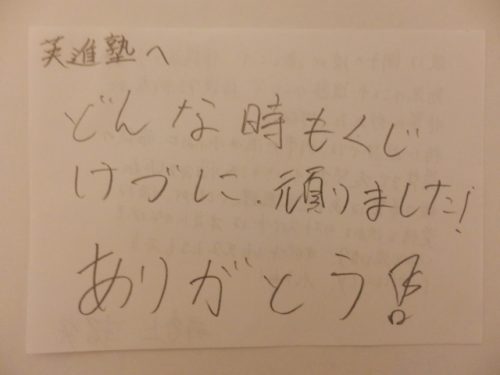 英進塾へ
どんな時もくじ
けづに、頑りました!
ありがとう!